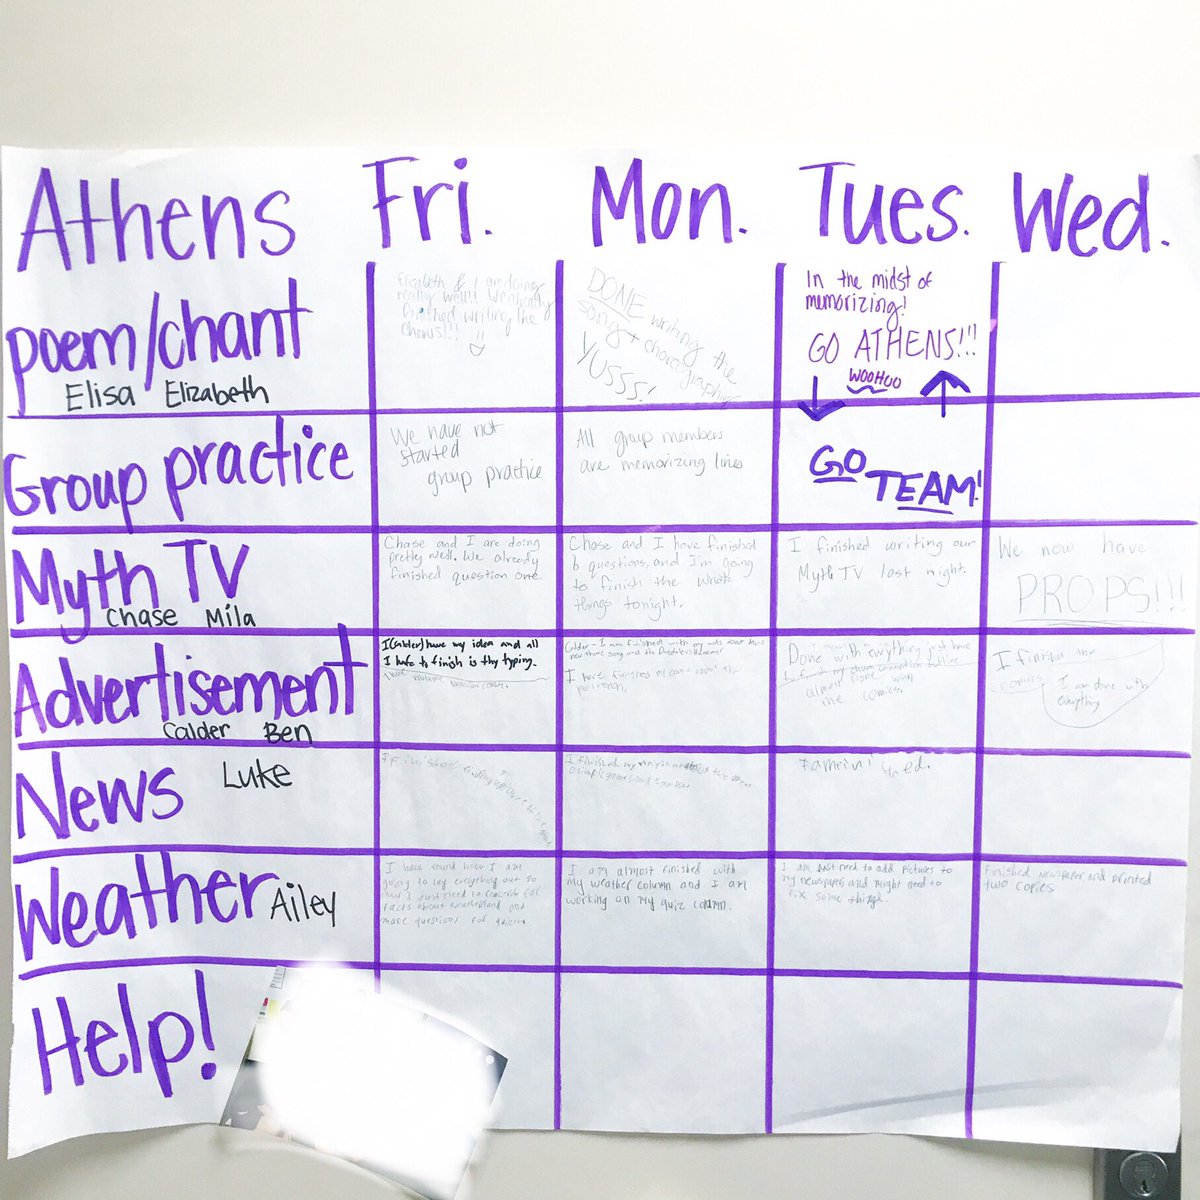 Athens Fri. Mon. Tues. Wed.
poem/chant
Elisa Elizabeth
Elizabeth & I are doing
really well!! We actually
finished writing the
DONE writing the
song + choreographing
YUSSS!
In the midst of
memorizing!
GO ATHENS!!!
WOOHOO
Group practice
We have not
started
group practice
All group members
are memorizing lines
GO
TEAM!
Myth TV
Chase Mila
Chase and I are doing
pretty well. We already
finished question one.
Chase and I have finished
6 questions, and I'm going
to finish the whole
things tonight.
I finished writing our
Myth TV last night.
We now have
PROPS!!!
Advertisement
Calder Ben
I (Calder) have my idea and all
I have to finish is the typing.
Calder - I am finished with my
I have finished
Done with everything just have
to
almost done with
the comics.
I finished the
comics
I am done with
everything
News Luke
I finished my
Weather Ailey
I have found how I am
going to lay everything out so
now I just need to
facts about
make questions for
I am almost finished with
my weather column and I am
working on my quiz column.
I am just need to add pictures to
my newspaper and might need to
fix some things.
Finished newspaper and printed
two copies.
Help!